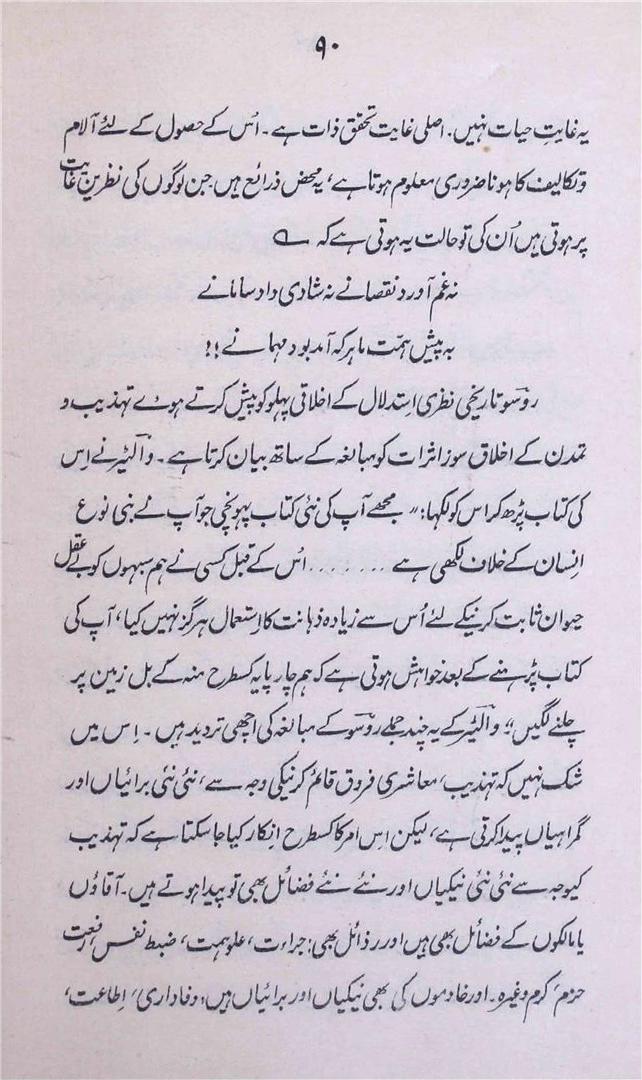 ۹۰
یہ غایتِ حیات نہیں. اصلی غایت تحقق ذات ہے۔ اُس کے حصول کے لئے آلام
و تکالیف کا ہونا ضروری معلوم ہوتا ہے، یہ محض ذرائع ہیں جن لوگوں کی نظرین غایت
پر ہوتی ہیں اُن کی تو حالت یہ ہوتی ہے کہ ؎
نہ غم آورد نقصانے نہ شادی داد سامانے
بہ پیش ہمّت ما ہر کہ آمد بود مہمانے!!
روسو تاریخی نظری اِستدلال کے اخلاقی پہلو کو پیش کرتے ہوے تہذیب و
تمدن کے اخلاق سوز اثرات کو مبالغہ کے ساتھ بیان کرتا ہے۔ والٹیر نے اِس
کی کتاب پڑھ کر اس کو لکہا: "مجھے آپ کی نئی کتاب پہونچی جو آپ نے بنی نوع
اِنسان کے خلاف لکھی ہے ....... اُس کے قبل کسی نے ہم سبہوں کو بے عقل
حیوان ثابت کرنیکے لئے اُس سے زیادہ ذہانت کا اِستعمال ہرگز نہیں کیا، آپ کی
کتاب پڑہنے کے بعد خواہش ہوتی ہے کہ ہم چارپایہ کیطرح منہ کے بل زمین پر
چلنے لگیں"؛ والٹیر کے یہ چند جملے روسو کے مبالغہ کی اچھی تردید ہیں۔ اِس میں
شک نہیں کہ تہذیب، معاشری فروق قائم کرنیکی وجہ سے، نئی نئی برائیاں اور
گمراہیاں پیدا کرتی ہے، لیکن اِس امر کا کسطرح اِنکار کیا جاسکتا ہے کہ تہذیب
کیوجہ سے نئی نئی نیکیاں اور نئے نئے فضائل بھی تو پیدا ہوتے ہیں۔ آقاؤں
یا مالکوں کے فضائل بھی ہیں اور رذائل بھی: جراءت، علو ہمت، ضبط نفس، رفعت
حزم، کرم وغیرہ۔ اور خادموں کی بھی نیکیاں اور برائیاں ہیں، وفاداری، اِطاعت،